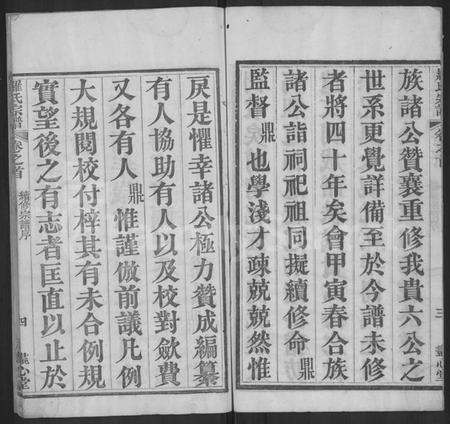 族諸公贊襄重修我貴六公之
世系更覺詳備至於今譜未修
者將四十年矣會甲寅春合族
諸公詣祠祀祖同擬續修命鼎
監督鼎也學淺才疎兢兢然惟
三
盡心堂
戾是懼幸諸公極力贊成編纂
有人協助有人以及校對歛費
又各有人鼎惟謹倣前議凡例
大規閱校付梓其有未合例規
實望後之有志者匡直以止於
羅氏宗譜 卷之首 續修宗譜序 四 盡心堂